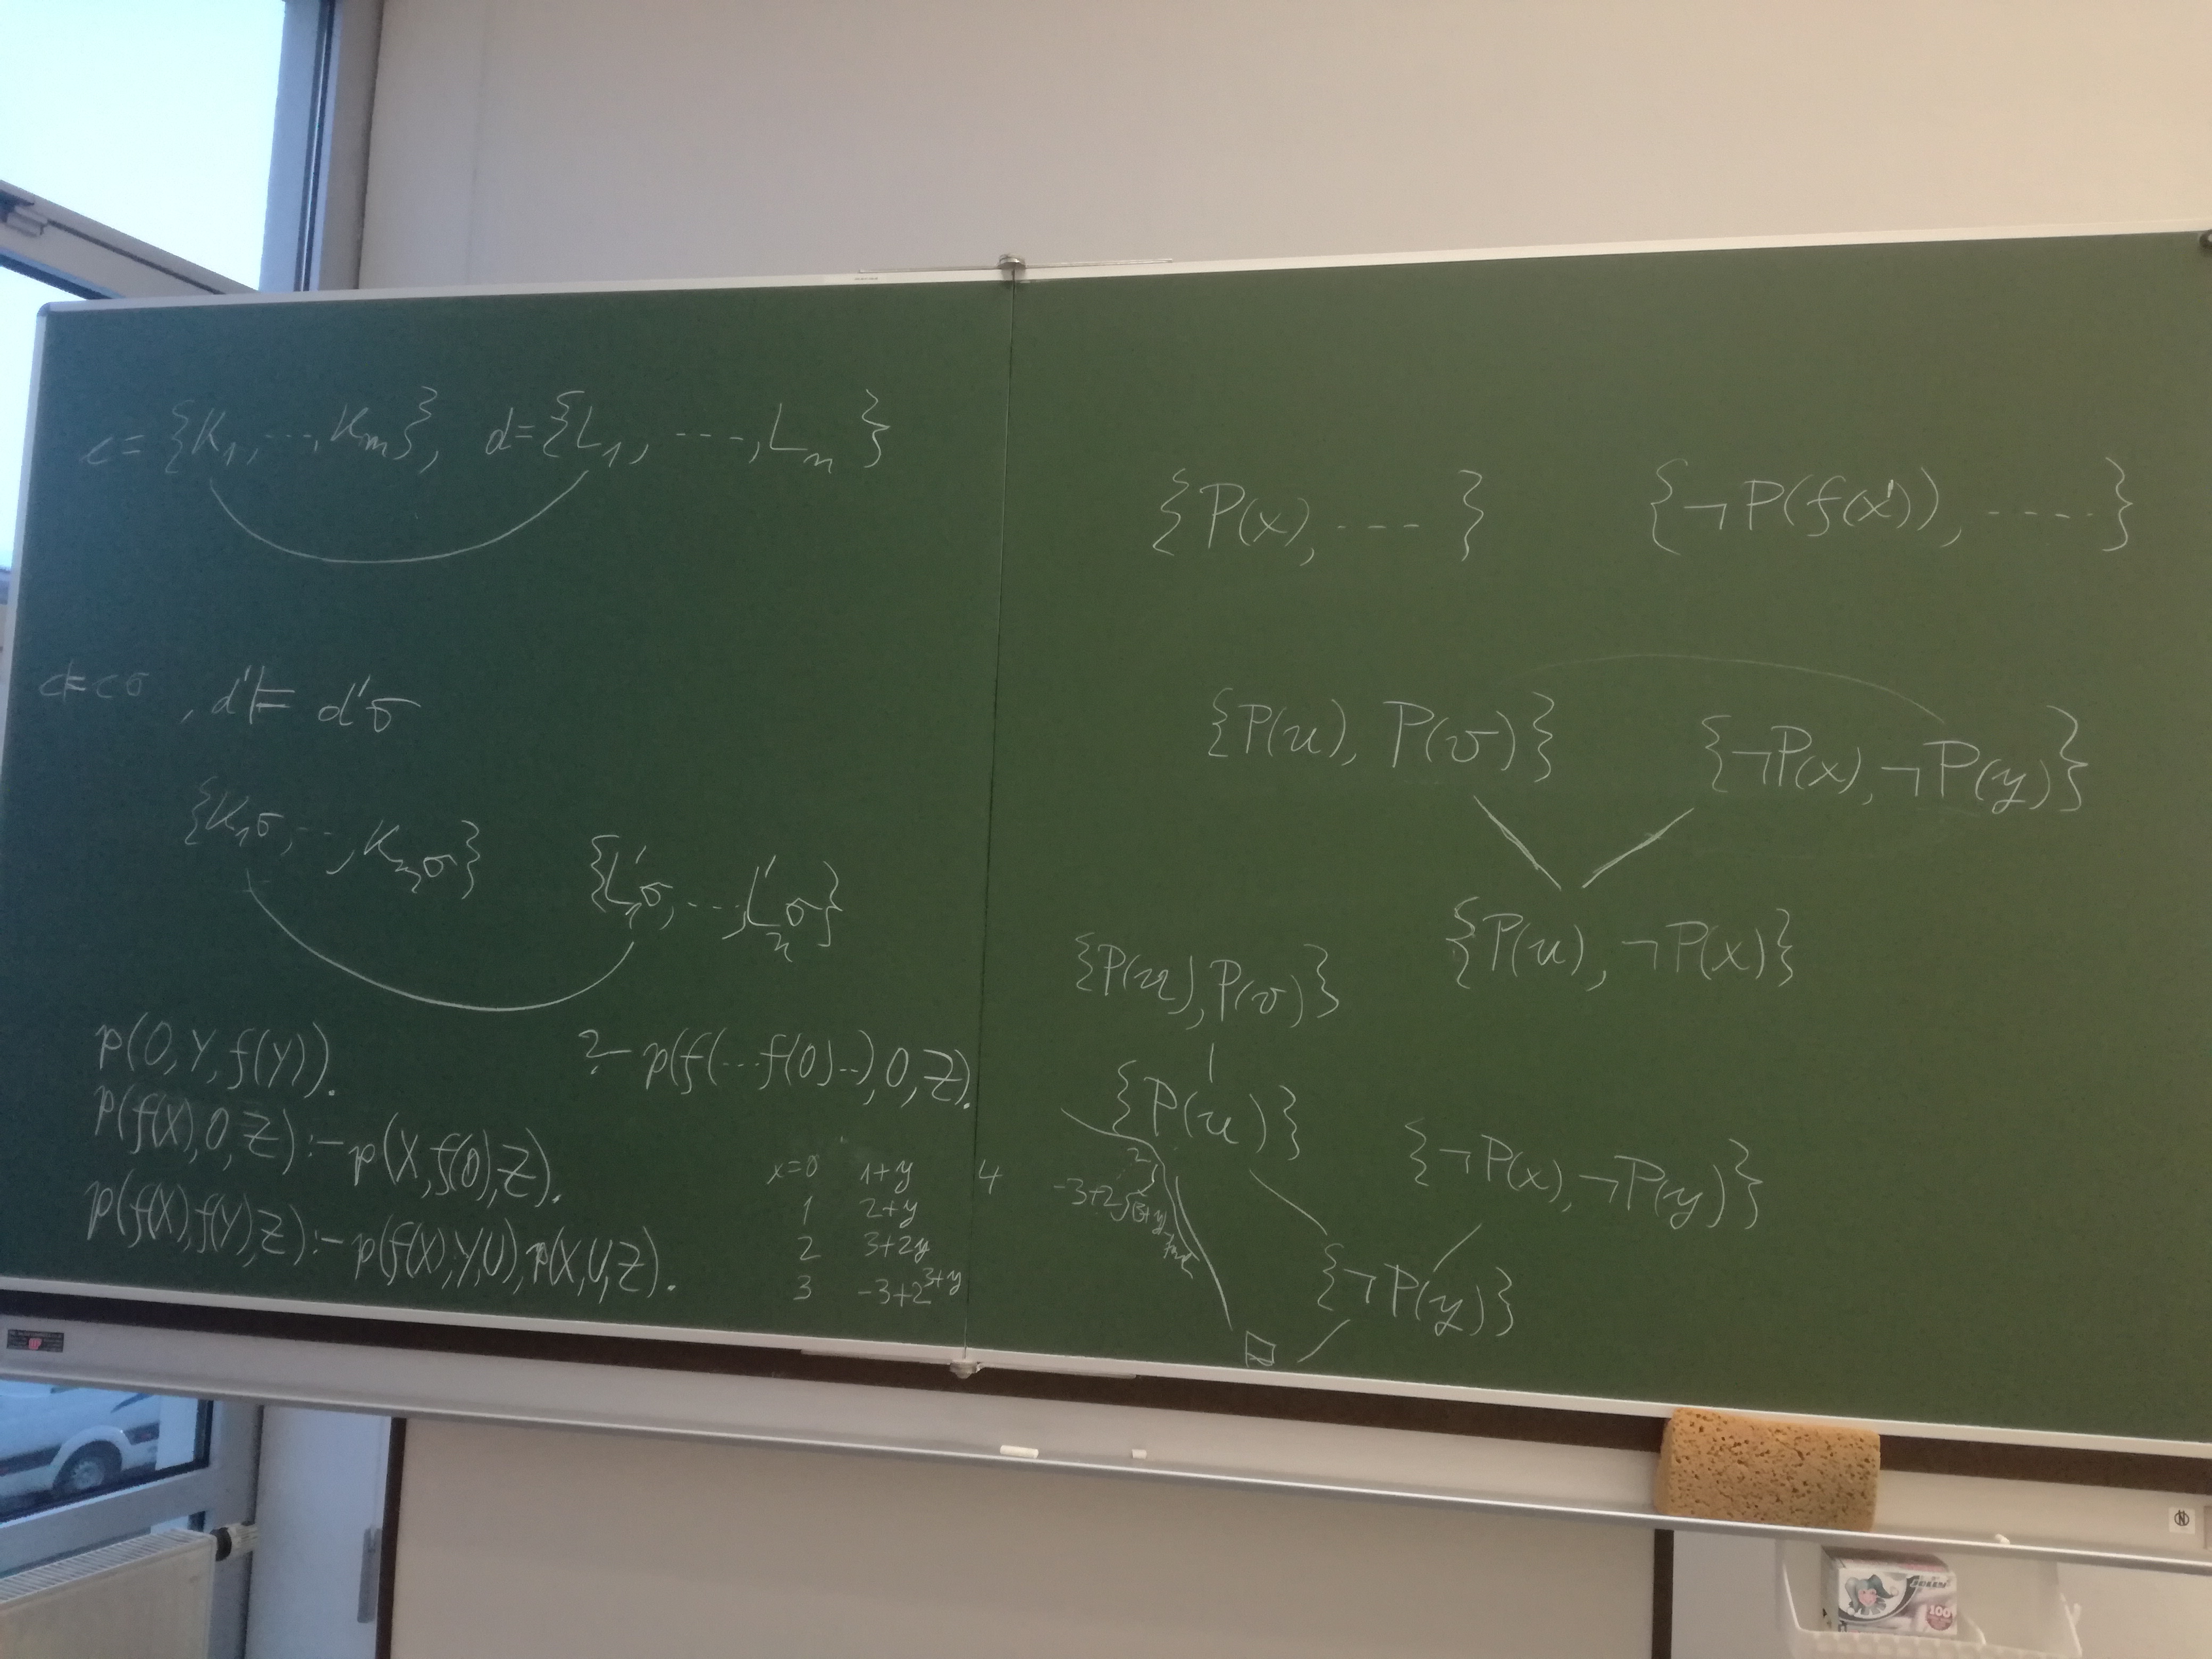 c = {K₁, ..., Kₘ}, d = {L₁, ---, Lₙ}
c ⊨ cσ , d' ⊨ d'σ
{K₁σ, .., Kₘσ} {L'₁σ, ..., L'ₙσ}
p(0,Y,f(Y)).
p(f(X),0,Z):-p(X,f(0),Z).
p(f(X),f(Y),Z):-p(f(X),Y,U),p(X,U,Z).
?- p(f(...f(0)..),0,Z).
x=0 1+y
1 2+y
2 3+2y
3 -3+2^{3+y}
4
{P(x), --- } {¬P(f(x')), ..... }
{P(u), P(v)} {¬P(x), ¬P(y)}
{P(u), ¬P(x)}
{P(u), P(v)}
{P(u)} {¬P(x), ¬P(y)}
{¬P(y)}
□